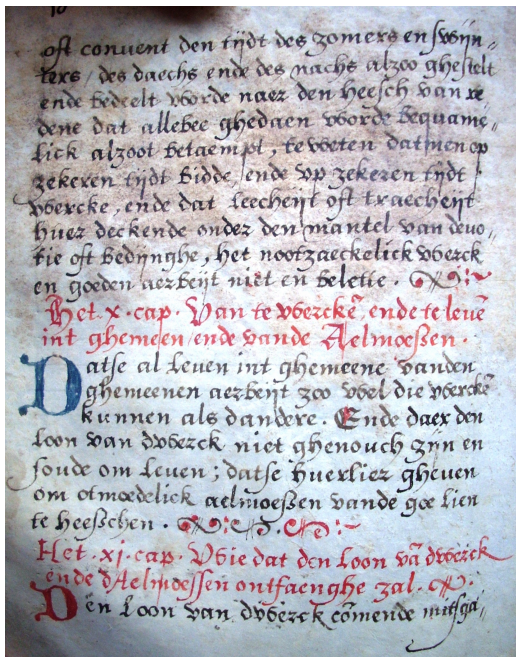 oft convent den tijdt des zomers en swijn-
ters, des daechs ende des nachs alzoo ghestelt
ende bedeelt worde naer den heesch van re
dene dat allebee ghedaen worde bequame-
lick alzoot betaempt, te weten datmen op
zekeren tijdt bidde, ende up zekeren tijdt
wercke, ende dat leecheijt oft traecheijt
huer deckende onder den mantel van devo
tie oft bedijnghe, het nootzaeckelick werck
en goeden aerbeijt niet en belette.
Het .x. cap. Van te wercke͂, ende te leve͂
int ghemeen, ende vande Aelmoeßen.
Datse al leven int ghemeene vanden
ghemeenen aerbeijt zoo wel die wercke͂
kunnen als dandere. Ende daer den
loon van dwerck niet ghenouch zijn en
soude om leven; datse huerlier gheven
om otmoedelick aelmoeßen vande goe lien
te heesschen.
Het .xj. cap. Wie dat den loon va͂ dwerck
ende dAelmoessen ontfaenghe zal.
Den loon van dwerck co͂mende mitsga-